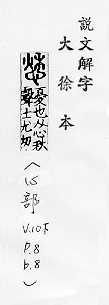 說文解字
大徐本
愁
憂也从心秋
聲士尤切
（心部
V.10下
P.8
b.8）